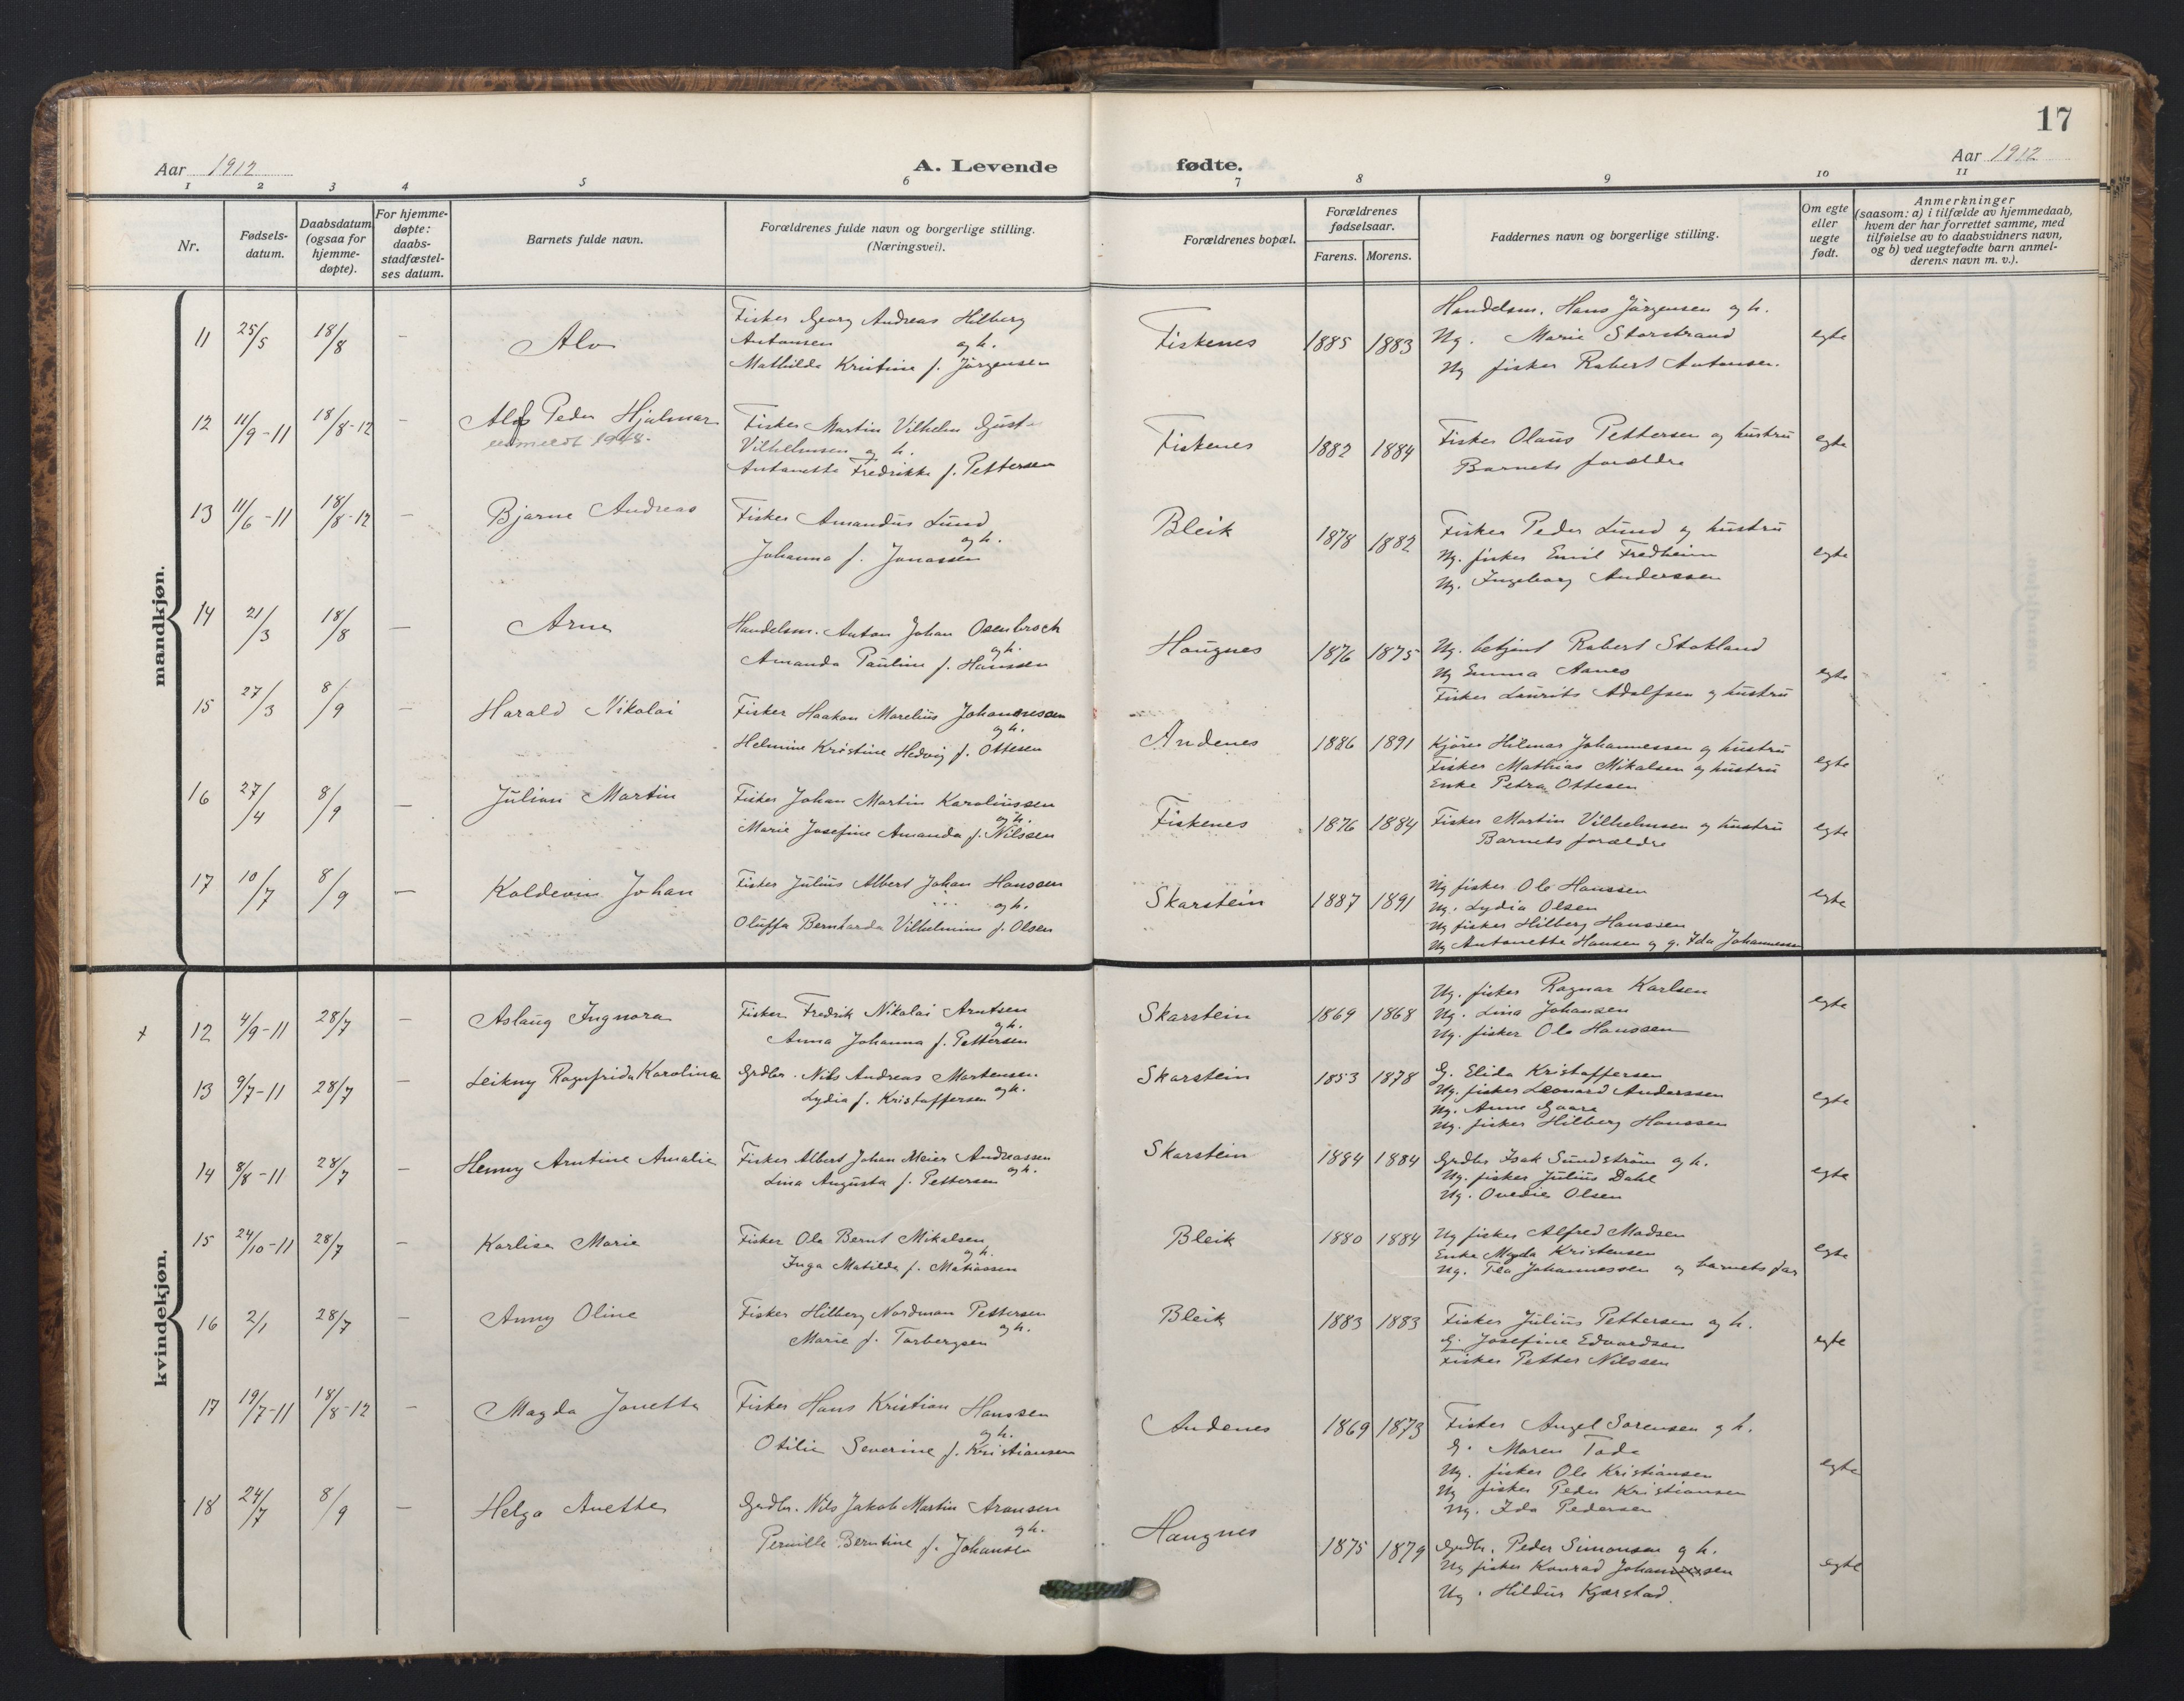 17
Aar 1912
A. Levende fødte.
Aar 1912
1 2 3 4 5 6 7 8 9 10 11
Nr.
Fødsels-
datum.
Daabsdatum
(ogsaa for
hjemme-
døpte).
For hjemme-
døpte:
daabs-
stadfæstel-
ses datum.
Barnets fulde navn.
Forældrenes fulde navn og borgerlige stilling.
(Næringsvei).
Forældrenes bopæl.
Forældrenes
fødselsaar.
Farens. Morens.
Faddernes navn og borgerlige stilling.
Om egte
eller
uegte
født.
Anmerkninger
(saasom: a) i tilfælde av hjemmedaab,
hvem der har forrettet samme, med
tilføielse av to daabsvidners navn,
og b) ved uegtefødte barn anmel-
derens navn m. v.).
mandkjøn.
11 25/5 18/8 — Alv
Fisker Georg Andreas Hilberg
Antonsen og h.
Mathilde Kristine f. Jørgensen
Fiskenes 1885 1883
Handelsm. Hans Jørgensen og h.
Ug. Marie Storstrand
Ug fisker Robert Antonsen.
egte
12 11/9-11 18/8-12 — Alf Peder Hjalmar
utmeldt 1948.
Fisker Martin Vilhelm Gust
Vilhelmsen og h.
Antonette Fredrikke f. Pettersen
Fiskenes 1882 1884
Fisker Olaus Pettersen og hustru
Barnets forældre
egte
13 11/6-11 18/8-12 — Bjarne Andreas
Fisker Amandus Lund
og h.
Johanna f. Jonassen
Bleik 1878 1882
Fisker Peder Lund og hustru
Ug. fisker Emil Fredheim
Ug. Ingeborg Anderssen
egte
14 21/3 18/8 — Arne
Handelsm. Anton Johan Osenbroch
og h.
Amanda Pauline f. Hanssen
Haugnes 1876 1875
Ug. betjent Robert Stokland
Ug Emma Aanes
Fisker Laurits Adolfsen og hustru
egte
15 27/3 8/9 — Harald Nikolai
Fisker Haakon Marelius Johannessen
og h.
Helmine Kristine Hedvig f. Ottesen
Andenes 1886 1891
Kjører Hilmar Johannessen og hustru
Fisker Mathias Mikalsen og hustru
Enke Petra Ottesen
egte
16 27/4 8/9 — Julian Martin
Fisker Johan Martin Karolinssen
og h.
Marie Josefine Amanda f. Nilssen
Fiskenes 1876 1884
Fisker Martin Vilhelmsen og hustru
Barnets forældre
egte
17 10/7 8/9 — Koldevin Johan
Fisker Julius Albert Johan Hanssen
og h.
Oluffa Bernharda Vilhelmine f. Olsen
Skarstein 1887 1891
Ug fisker Ole Hanssen
Ug. Lydia Olsen
Ug fisker Hilberg Hanssen
Ug Antonette Hansen og g. Ida Johannessen
egte
kvindekjøn.
+ 12 4/9-11 28/7 — Aslaug Ingnora
Fisker Fredrik Nikolai Arntsen
og h.
Anna Johanna f. Pettersen
Skarstein 1869 1868
Ug. fisker Ragnar Karlsen
Ug. Lina Johansen
Ug. fisker Ole Hanssen
egte
13 9/7-11 28/7 — Leikny Ragnfrida Karoline
Grdbr. Nils Andreas Mortensen
Lydia f. Kristoffersen og h.
Skarstein 1853 1878
G. Elida Kristoffersen
Ug. fisker Leonard Anderssen
Ug. Anne Gaare
Ug. fisker Hilberg Hanssen
egte
14 8/8-11 28/7 — Henny Arntine Amalie
Fisker Albert Johan Meier Andreassen
Lina Augusta f. Pettersen og h.
Skarstein 1884 1884
Grdbr Isak Sundstrøm og h.
Ug. fisker Julius Dahl
Ug. Ovedie Olsen
egte
15 24/10-11 28/7 — Karlise Marie
Fisker Ole Bernt Mikalsen
og h.
Inga Matilde f. Matiassen
Bleik 1880 1884
Ug fisker Alfred Madsen
Enke Magda Kristensen
Ug. Tea Johannessen og barnets far
egte
16 2/1 28/7 — Anny Oline
Fisker Hilberg Nordman Pettersen
og h.
Marie f. Torbergsen
Bleik 1883 1883
Fisker Julius Pettersen og h.
G. Josefine Edvardsen
Fisker Petter Nilssen
egte
17 19/7-11 18/8-12 — Magda Jonette
Fisker Hans Kristian Hanssen
og h.
Otilie Severine f. Kristiansen
Andenes 1869 1873
Fisker Angel Sørensen og h.
G. Maren Tode
Ug. fisker Ole Kristiansen
Ug fisker Peder Kristiansen
Ug. Ida Pedersen
egte
18 24/7 8/9 — Helga Anette
Grdbr. Nils Jakob Martin Aronsen
og h.
Pernille Berntine f. Johansen
Haugnes 1875 1879
Grdbr. Peder Simonsen og h.
Ug fisker Konrad Johansen
Ug. Hildur Kjærstad.
egte